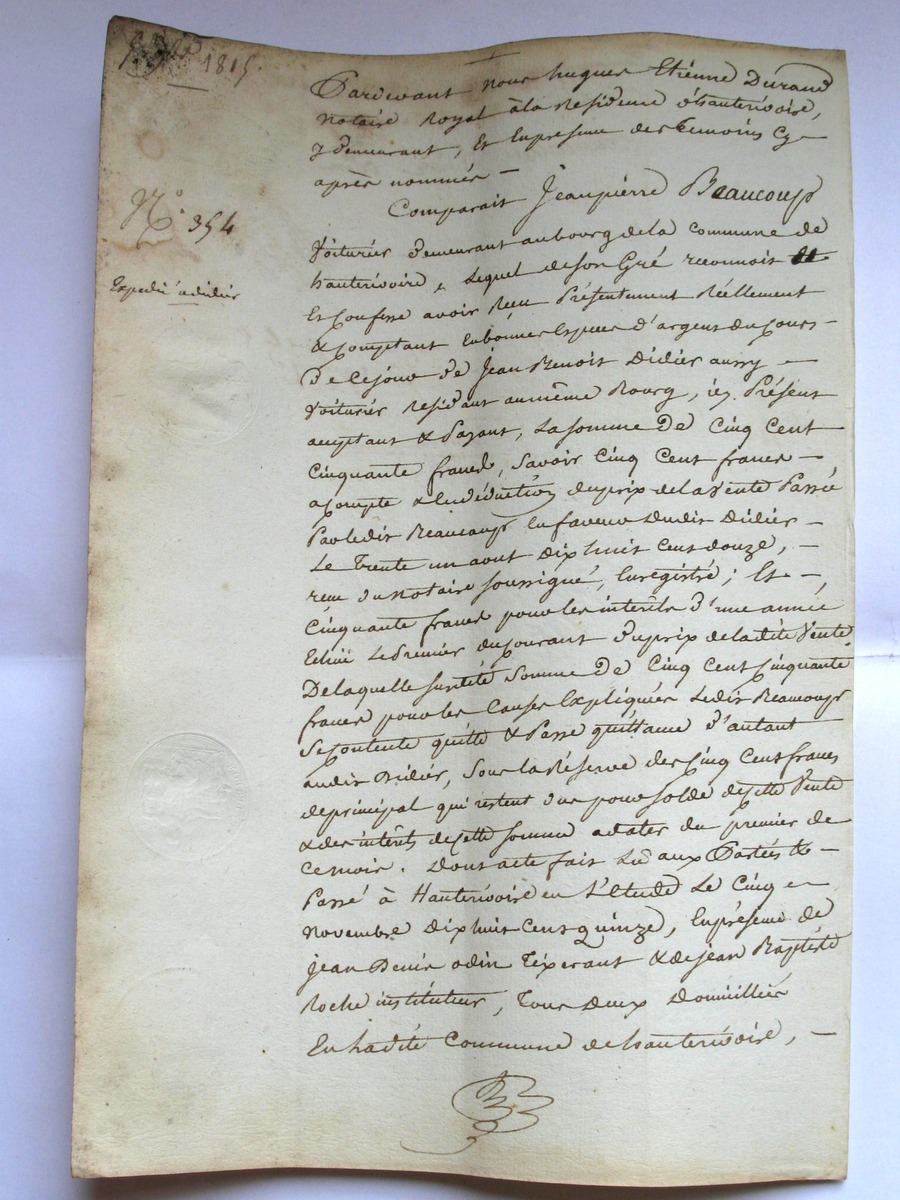 5 9bre 1815.
Pardevant Nous hugues Etiénne Durand
Notaire Royal à la Residence d'hauterivoire,
y demeurant, Et En presence des temoins Cy-
après nommés -
N.° 354
Comparait Jean pierre Beaucoup
Voiturier demeurant au bourg de la commune de
Expedié a didier
hauterivoire, Lequel de son Gré reconnoit
Et Confesse avoir Reçu Présentement Réellement
& Comptant En bonnes Especes d'argent du Cours -
de Ce jour de Jean Benoit Didier aussy -
Voiturier Residant au même Bourg, icy Présent
acceptant & Payant, La somme De Cinq Cent
Cinquante francs, Savoir Cinq Cent francs -
a Compte & En déduction du prix de la Vente Passée
Par le dit Beaucoup En faveur dudit Didier -
Le Trente un aout Dix huit Cent douze, -
recu du Notaire soussigné, Enregistré; Et -,
Cinquante francs pour les intérêts d'une année
Echue Le Premier du Courant du prix de la dite Vente.
De laquelle susdité Somme De Cinq Cent Cinquante
francs pour les Causes Expliquées Ledit Beaucoup
Se Contente quitte & Passe quittance d'autant
audit Didier, Sous la Réserve des Cinq Cent francs
de principal qui restent dus pour Solde de Cette Vente
& des intérêts de Cette Somme a dater du premier de
Ce mois. Dont acte fait Lu aux Parties &
Passé à Hauterivoire en L'étude Le Cinq
Novembre Dix huit Cent Quinze, En présence de
Jean Denis odin Tixerant & de jean Baptiste
Roche instituteur, Tous Deux Domiciliés
En Ladite Commune de hauterivoire, -